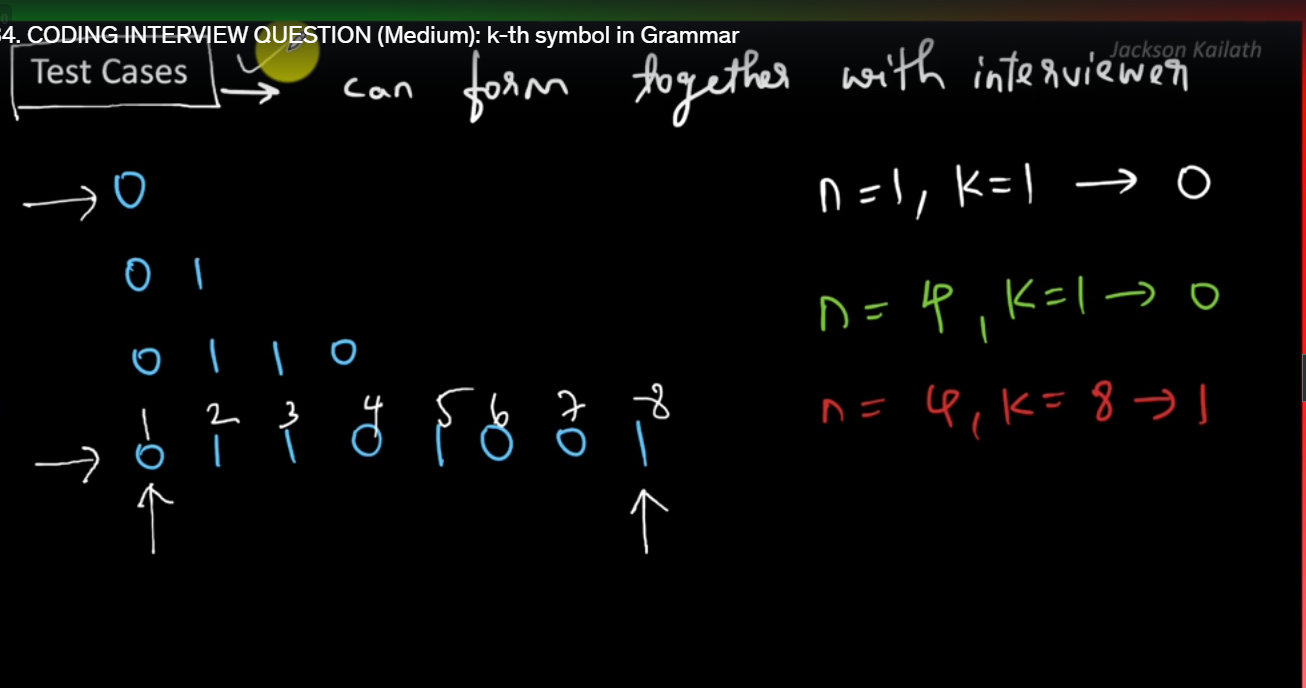 34. CODING INTERVIEW QUESTION (Medium): k-th symbol in Grammar
Jackson Kailath
Test Cases → can form together with interviewer
→ 0
n=1, k=1 → 0
0 1
n= 4, k=1 → 0
0 1 1 0
1 2 3 4 5 6 7 8
n= 4, k= 8 → 1
→ 0 1 1 0 1 0 0 1
↑ ↑